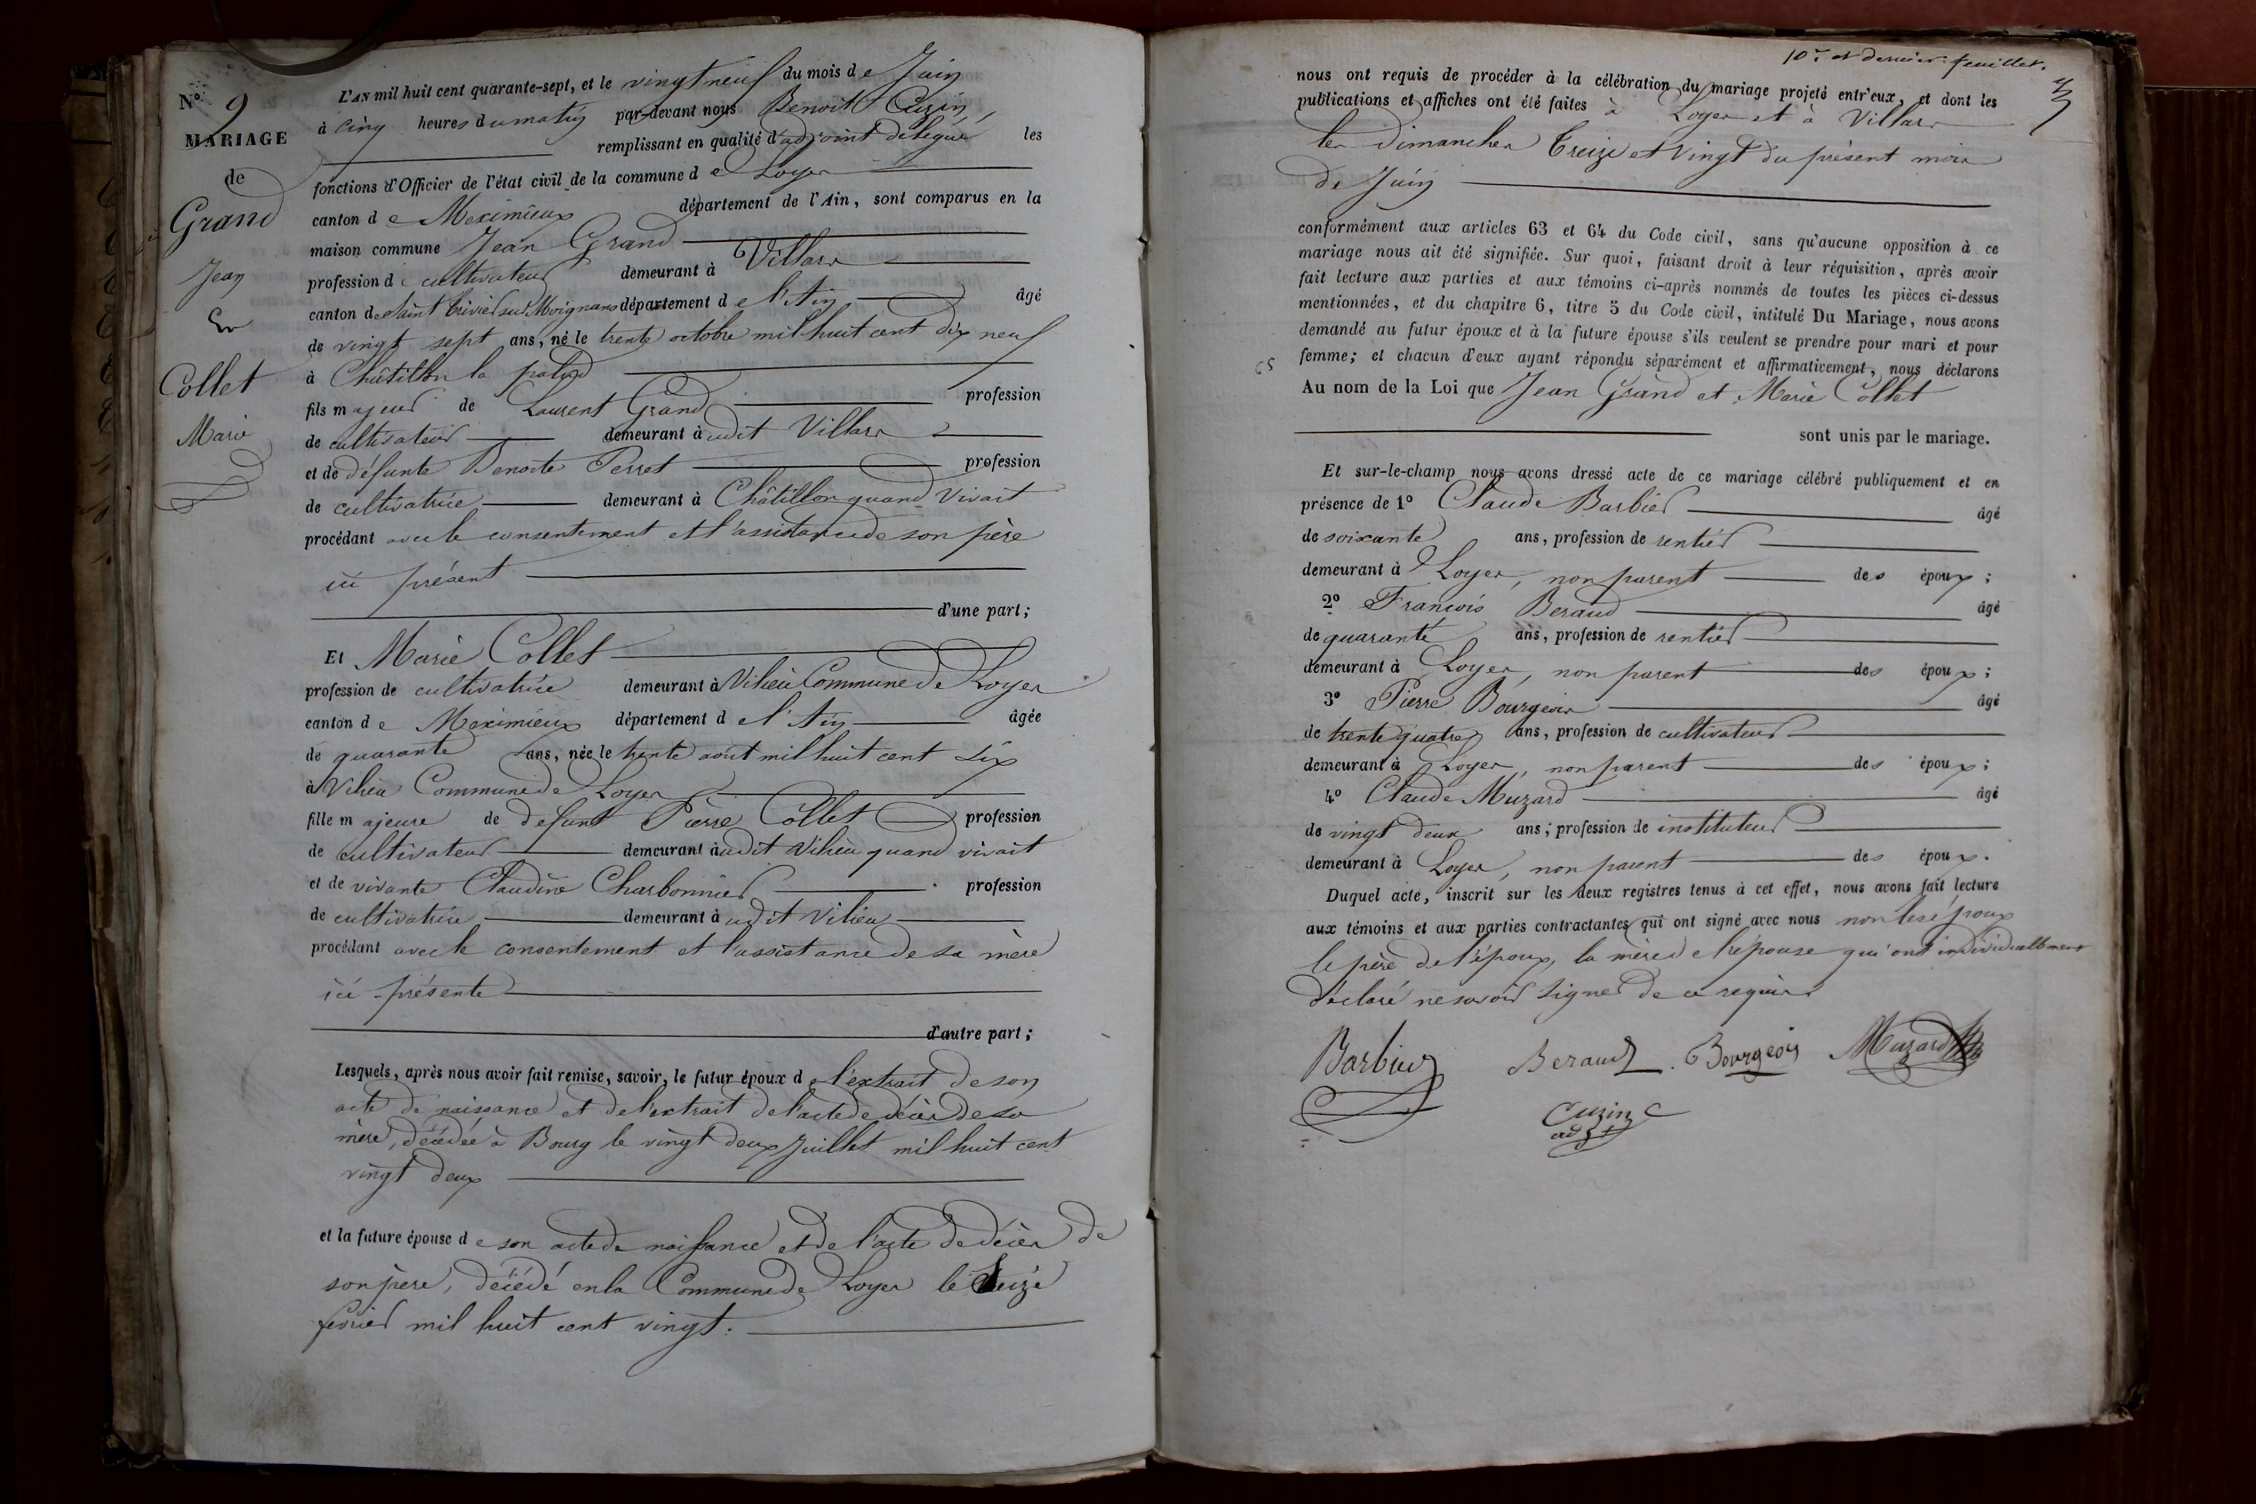 N.º 9
MARIAGE
de
Grand
Jean
Et
Collet
Marie
L'AN mil huit cent quarante-sept, et le vingt neuf du mois de Juin
à cinq heures du matin par-devant nous Benoit Cuzin,
remplissant en qualité d'adjoint délégué les
fonctions d'Officier de l'état civil de la commune de Loyes
canton de Meximieux département de l'Ain, sont comparus en la
maison commune Jean Grand
profession de cultivateur demeurant à Villars
canton de Saint Trivier sur Moignans département de l'Ain âgé
de vingt sept ans, né le trente octobre mil huit cent dix neuf
à Châtillon la palud
fils majeur de Laurent Grand profession
de cultivateur demeurant à udit Villars
et de défunte Benoite Perret profession
de cultivatrice demeurant à Châtillon quand vivait
procédant avec le consentement et l'assistance de son père
ici présent
d'une part;
Et Marie Collet
profession de cultivatrice demeurant à Vilieu Commune de Loyes
canton de Meximieux département de l'Ain âgée
de quarante ans, née le trente aout mil huit cent six
à Vilieu Commune de Loyes
fille majeure de défunt Pierre Collet profession
de cultivateur demeurant à udit Vilieu quand vivait
et de vivante Claudine Charbonnier profession
de cultivatrice demeurant à udit Vilieu
procédant avec le consentement et l'assistance de sa mère
ici présente
d'autre part;
Lesquels, après nous avoir fait remise, savoir, le futur époux de l'extrait de son
acte de naissance et de l'extrait de l'acte de décès de sa
mère, décédée à Bourg le vingt deux Juillet mil huit cent
vingt deux
et la future épouse de son acte de naissance et de l'acte de décès de
son père, décédé en la Commune de Loyes le
fevrier mil huit cent vingt.
10e et dernier feuillet.
nous ont requis de procéder à la célébration du mariage projeté entr'eux, et dont les
publications et affiches ont été faites à Loyes et à Villars
les dimanches treize et vingt du présent mois
de Juin
conformément aux articles 63 et 64 du Code civil, sans qu'aucune opposition à ce
mariage nous ait été signifiée. Sur quoi, faisant droit à leur réquisition, après avoir
fait lecture aux parties et aux témoins ci-après nommés de toutes les pièces ci-dessus
mentionnées, et du chapitre 6, titre 5 du Code civil, intitulé Du Mariage, nous avons
demandé au futur époux et à la future épouse s'ils veulent se prendre pour mari et pour
femme; et chacun d'eux ayant répondu séparément et affirmativement, nous déclarons
Au nom de la Loi que Jean Grand et Marie Collet
sont unis par le mariage.
Et sur-le-champ nous avons dressé acte de ce mariage célébré publiquement et en
présence de 1º Claude Barbier âgé
de soixante ans, profession de rentier
demeurant à Loyes, non parent des époux;
2º François Beraud âgé
de quarante ans, profession de rentier
demeurant à Loyes, non parent des époux;
3º Pierre Bourgeois âgé
de trente quatre ans, profession de cultivateur
demeurant à Loyes, non parent des époux;
4º Claude Muzard âgé
de vingt deux ans; profession de instituteur
demeurant à Loyes, non parent des époux.
Duquel acte, inscrit sur les deux registres tenus à cet effet, nous avons fait lecture
aux témoins et aux parties contractantes qui ont signé avec nous non les époux
le père de l'époux, la mère de l'épouse qui ont individuellement
déclaré ne savoir signer de ce requis
Barbier Beraud Bourgeois Muzard
Cuzin
adjt